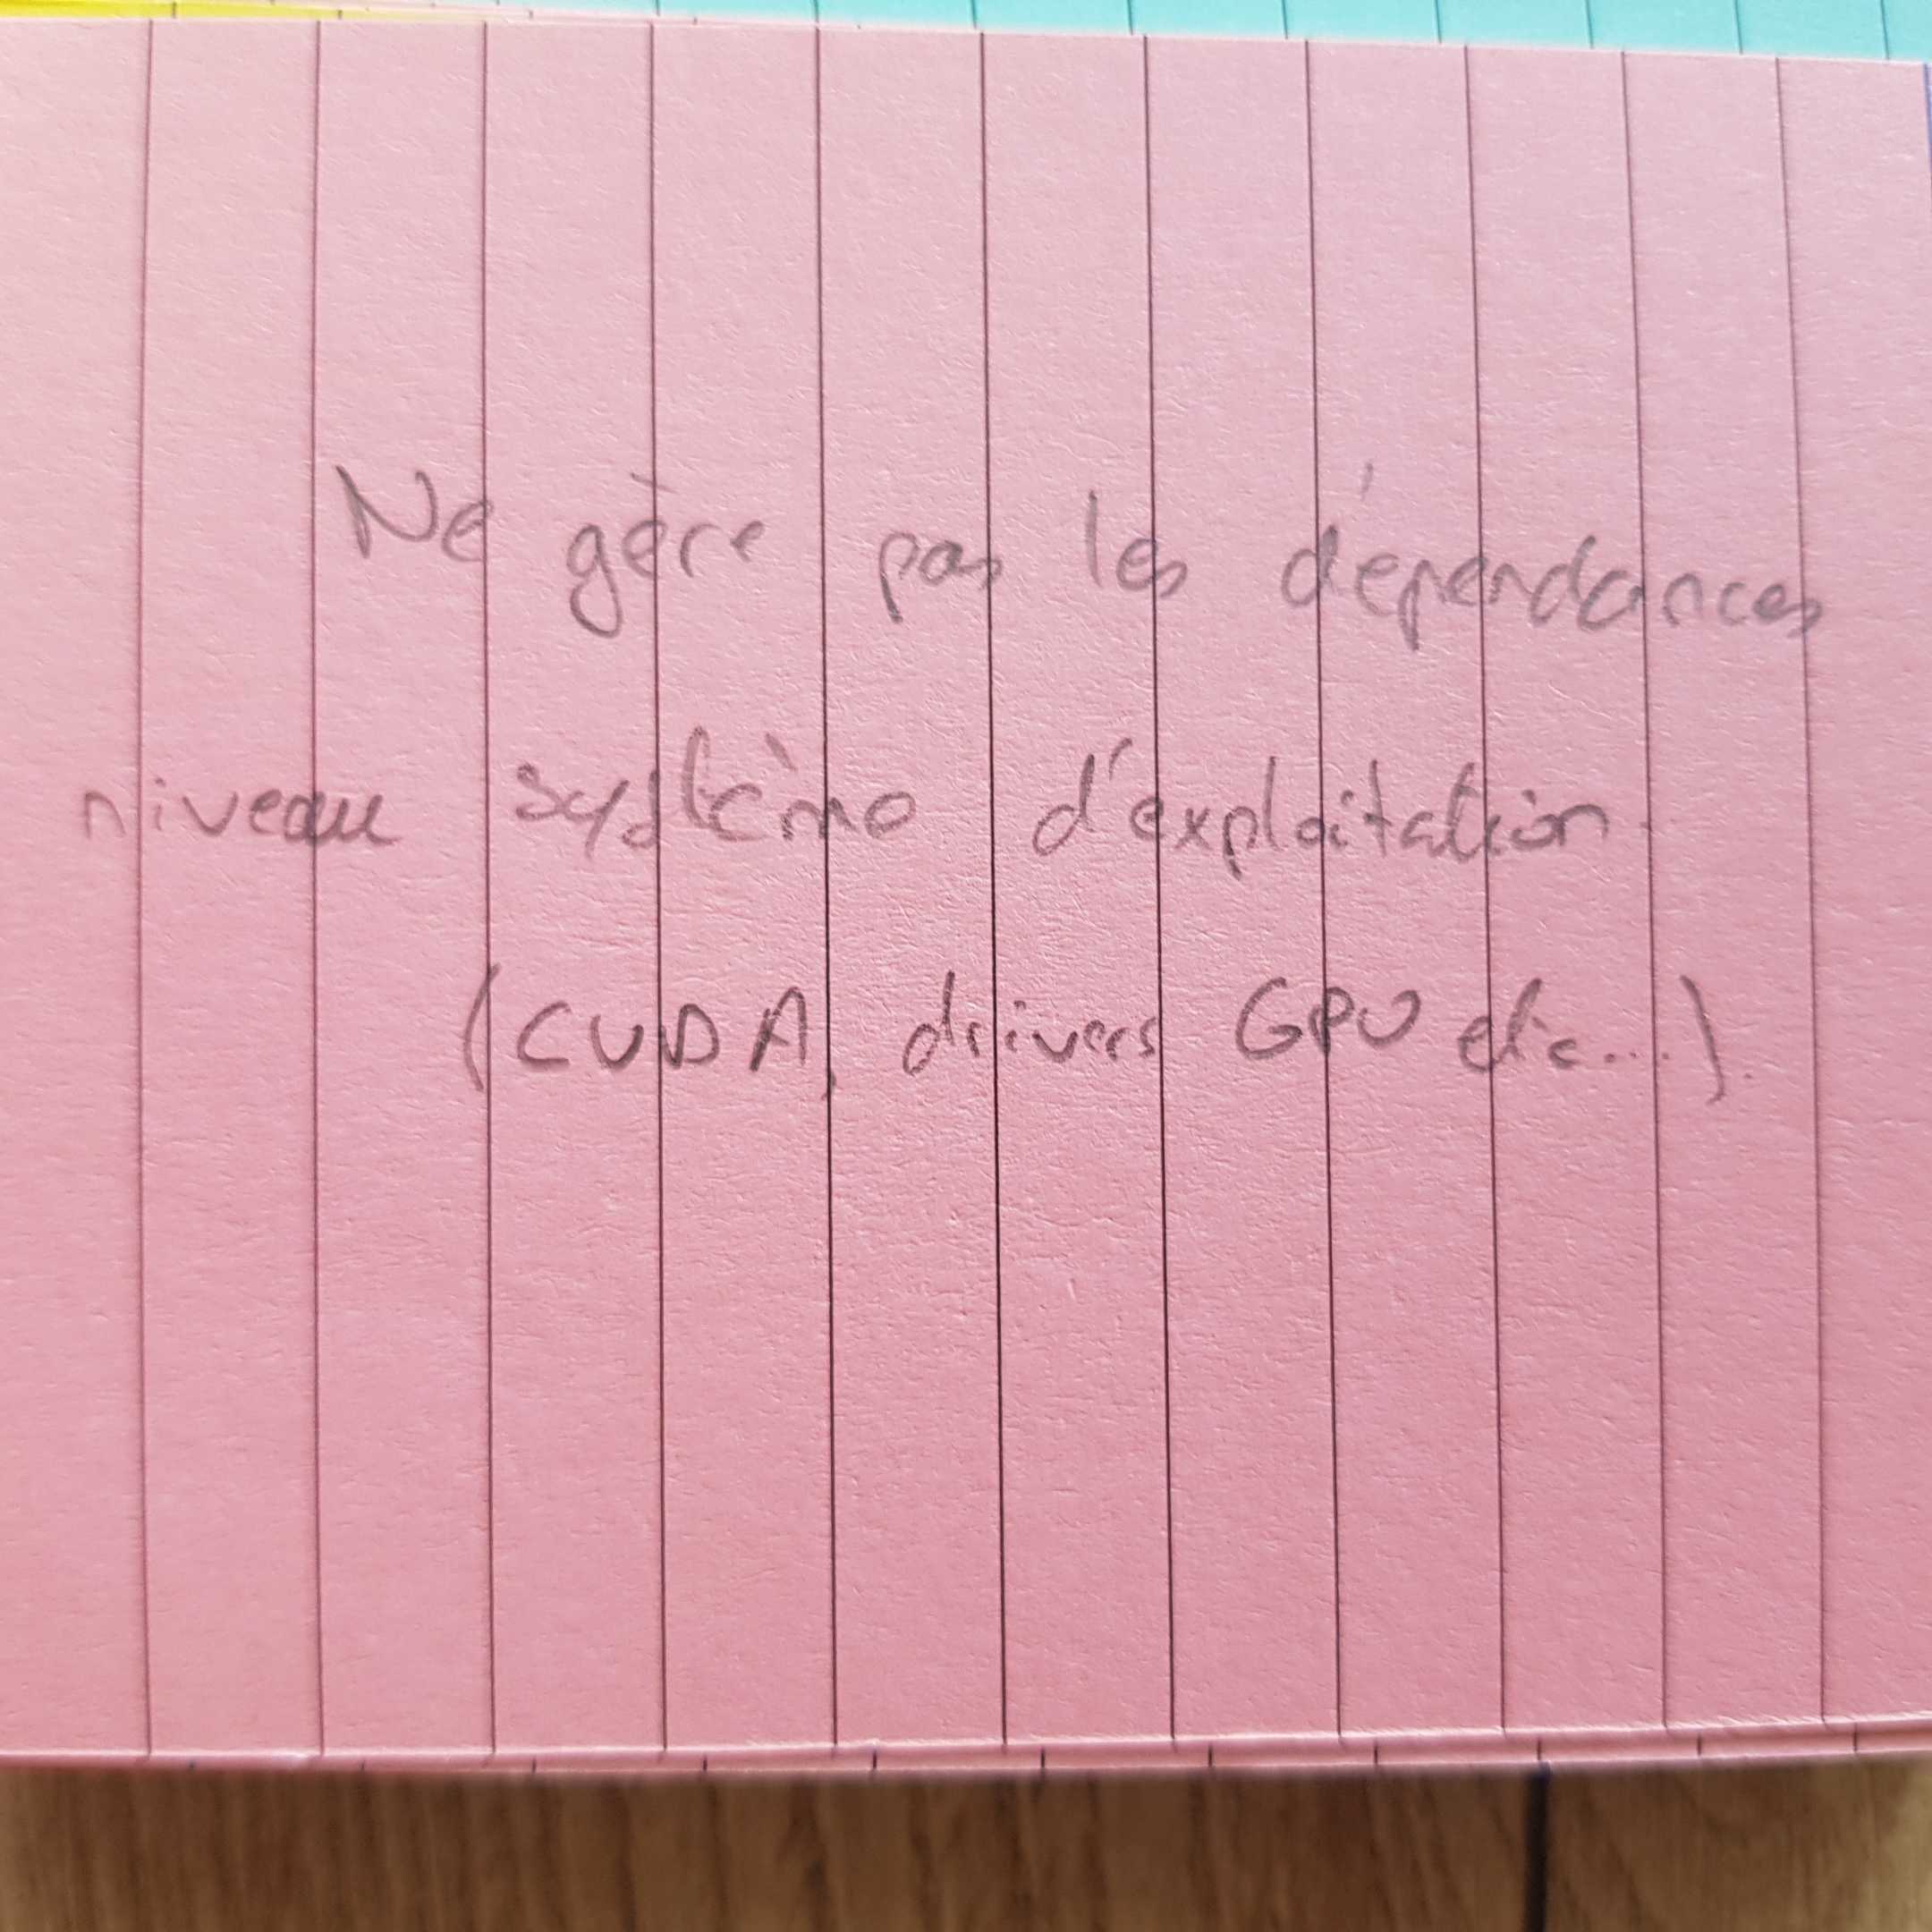 Ne gère pas les dépendances
niveau système d'exploitation
(CUDA, drivers GPU etc...).